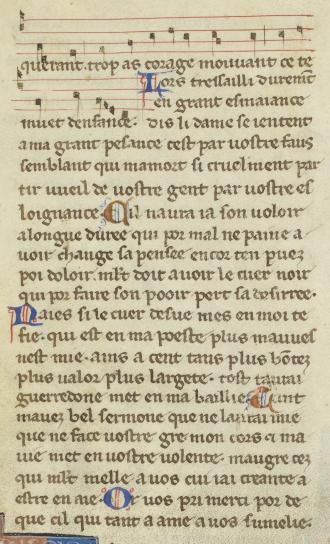 querant. trop as corage mouuant ce te
Lors tressailli durement
en grant esmaiance
muet denfance. dis li dame se ientent
a ma grant pesance cest par uostre faus
semblant qui ma mort si cruelment par
tir vueil de uostre gent par uostre es
loignance Cil naura ia son uoloir
a longue duree qui por mal ne paine a
uoir change sa pensee encor ten puez
poi doloir. mlt doit auoir le cuer noir
qui por faire son pooir pert sa desirree.
si le cuer desue mes en moi te
fie. qui est en ma poeste plus mauues
nest mie. ains a cent tans plus bontez
plus ualor plus largete. tost
guerredone met en ma baillie
mauez bel sermone que ne
que ne face uostre gre mon cors & ma
uie met en uostre uolente. maugre cez
qui mlt melle a uos cui iai creante a
estre en aie Or uos pri merci por de
que cil qui tant a ame a uos sumelie.